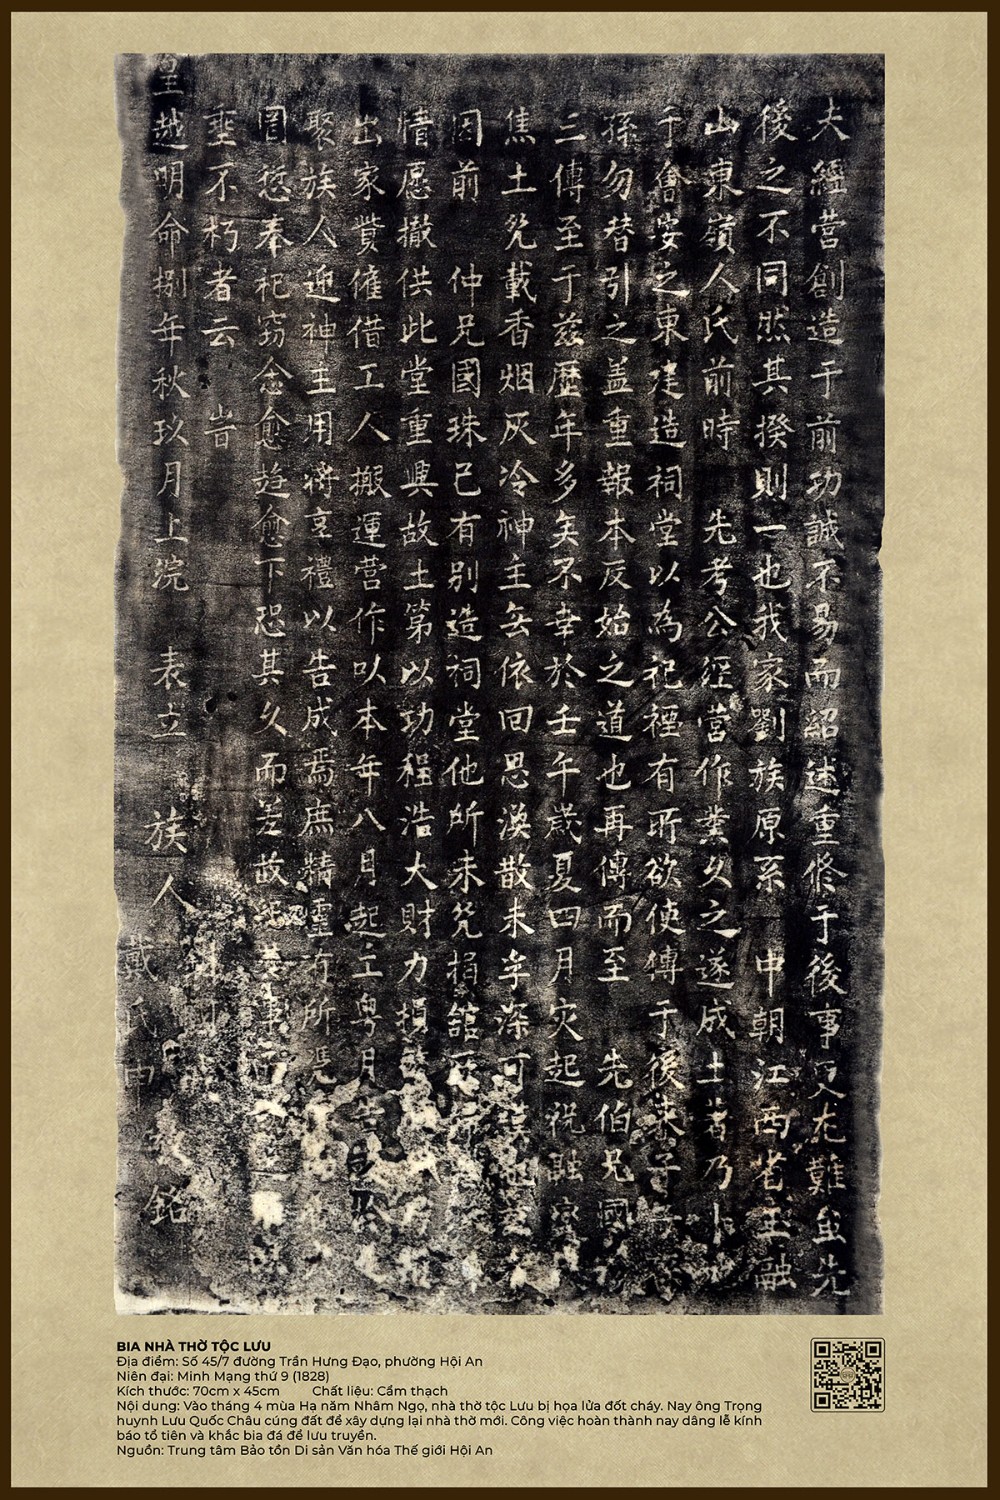 夫經營創造于前功誠不易而紹述重修于後事又尤難盖先
後之不同然其揆則一也我家劉族原系 中朝江西省玉融
山東嶺人氏前時 先考公經營作業久之遂成土著乃卜
于會安之東建造祠堂以為祀禋有所欲使傳于後来子
孫勿替引之盖重報本反始之道也再傳而至 先伯兄國
三傳至于兹歷年多矣不幸於壬午歲夏四月灾起祝融
焦土凭載香烟灰冷神主無依回思渙散未年深可
因前 仲兄國珠已有别造祠堂他所未凭捐舘
情愿撤供此堂重興故土第以功程浩大財力損
出家貲催借工人搬運營作以本年八月起工粤月告
聚族人迎神主用將享禮以告成焉庶精靈有所凭
罔愆奉祀窃念愈趋愈下恐其久而差故
垩不朽者云 旹
皇越明命捌年秋玖月上浣 表立 族人
戴氏
銘
BIA NHÀ THỜ TỘC LƯU
Địa điểm: Số 45/7 đường Trần Hưng Đạo, phường Hội An
Niên đại: Minh Mạng thứ 9 (1828)
Kích thước: 70cm x 45cm Chất liệu: Cẩm thạch
Nội dung: Vào tháng 4 mùa Hạ năm Nhâm Ngọ, nhà thờ tộc Lưu bị họa lửa đốt cháy. Nay ông Trọng
huynh Lưu Quốc Châu cúng đất để xây dựng lại nhà thờ mới. Công việc hoàn thành nay dâng lễ kính
báo tổ tiên và khắc bia đá để lưu truyền.
Nguồn: Trung tâm Bảo tồn Di sản Văn hóa Thế giới Hội An